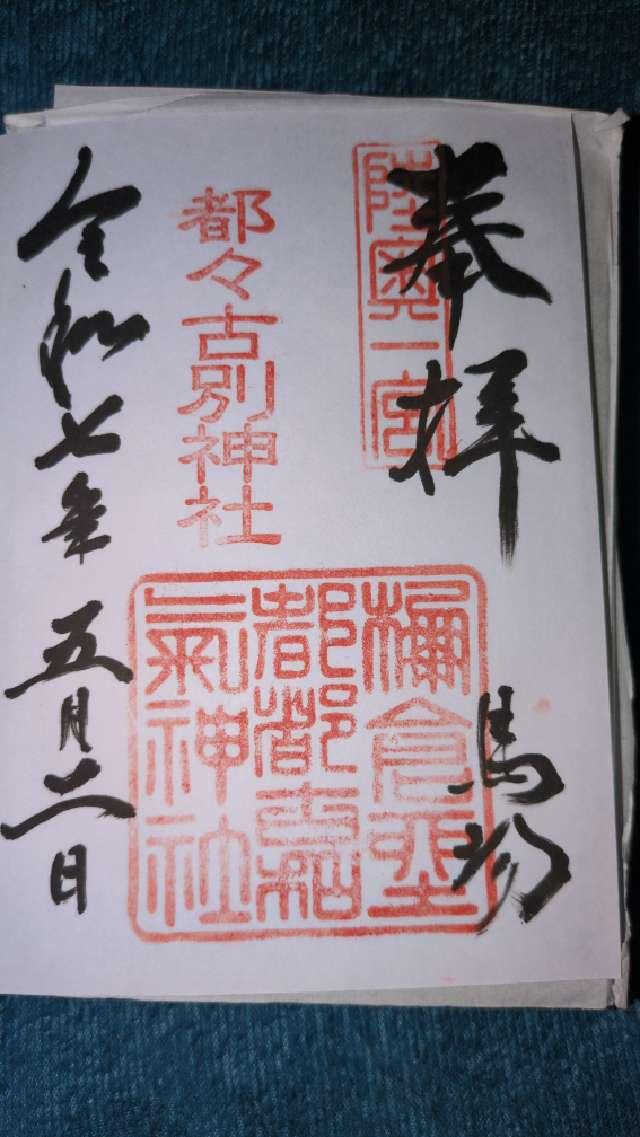 奉拝
陸奥一宮
馬場
都々古別神社
棚倉聖
都都古
氣神社
令和七年 五月二日